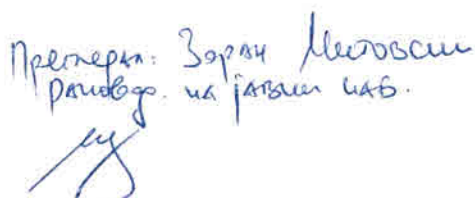 Прегледал: Зоран Митовски
раковод. на јавни наб.